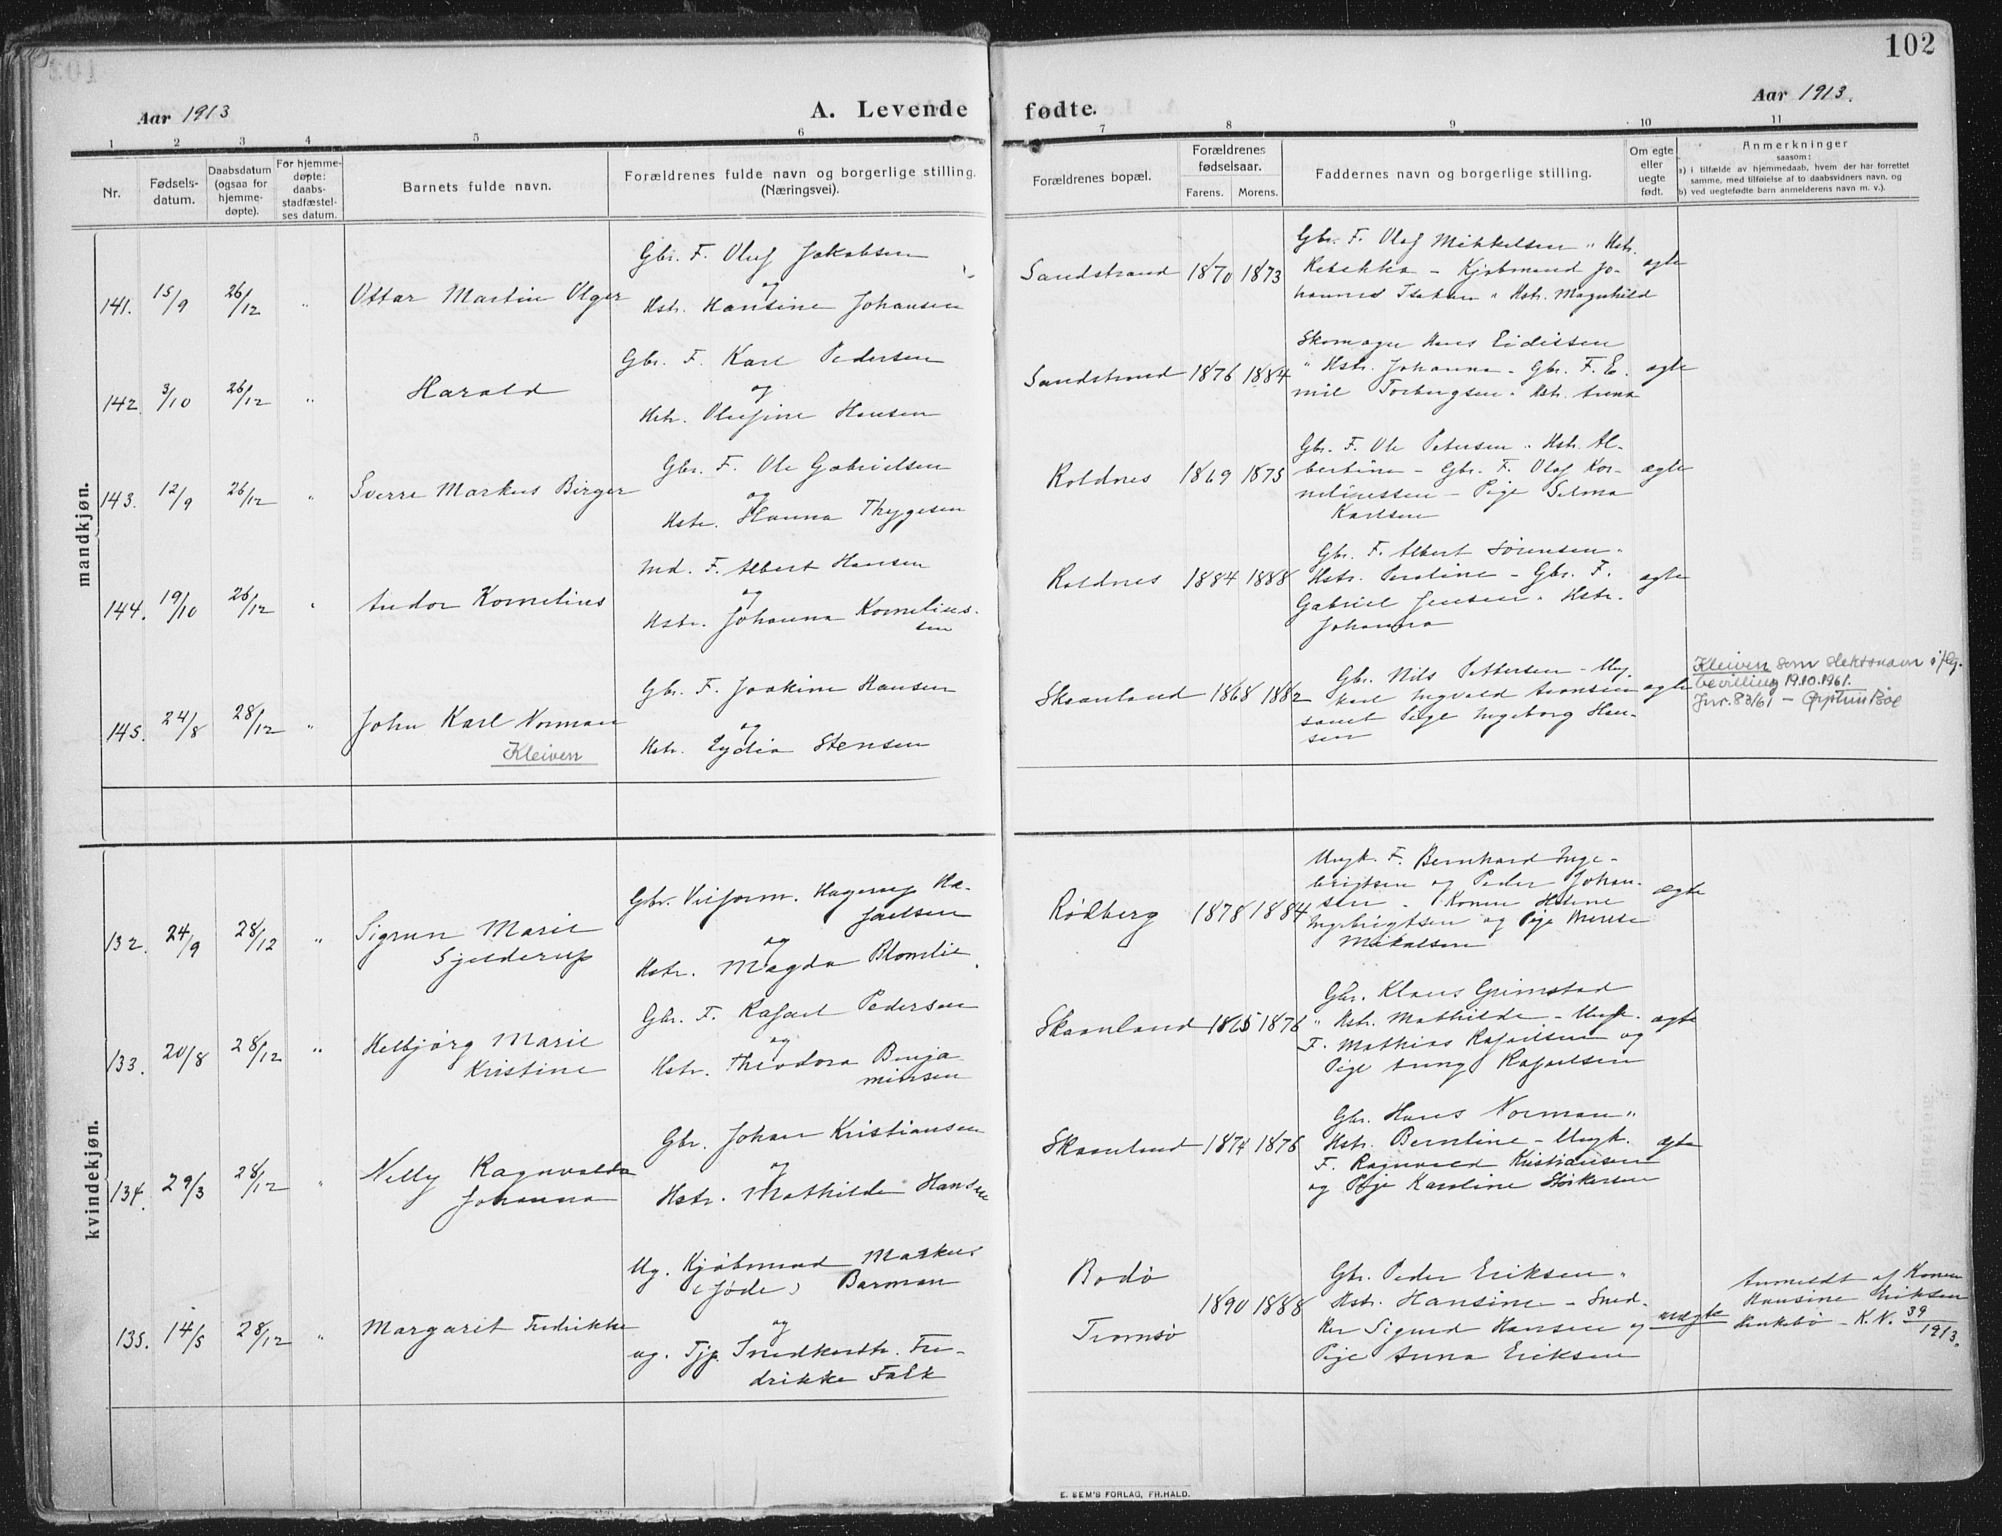 102
Aar 1913
A. Levende
fødte.
Aar 1913.
1 2 3 4 5 6 7 8 9 10 11
Nr.
Fødsels-
datum.
Daabsdatum
(ogsaa for
hjemme-
døpte).
For hjemme-
døpte:
daabs-
stadfæstel-
ses datum.
Barnets fulde navn.
Forældrenes fulde navn og borgerlige stilling.
(Næringsvei).
Forældrenes bopæl.
Forældrenes
fødselsaar.
Farens. Morens.
Faddernes navn og borgerlige stilling.
Om egte
eller
uegte
født.
Anmerkninger
saasom:
a) i tilfælde av hjemmedaab, hvem der har forrettet
samme, med tilføielse af to daabsvidners navn, og
b) ved uegtefødte barn anmelderens navn m. v.).
mandkjøn.
141. 15/9 26/12 " Ottar Martin Olger
Gbr. F. Oluf Jakobsen
og
Hstr. Hansine Johansen
Sandstrand 1870 1873
Gbr. F. Olaf Mikkelsen " Hstr.
Rebekka – Kjøbmand Jo-
hannes Isaksen " Hstr. Magnhild
ægte
142. 3/10 26/12 " Harald
Gbr. F. Karl Pedersen
og
Hstr. Olufine Hansen
Sandstrand 1876 1884
Skomager Hans Eidissen
" Hstr. Johanna – Gbr. F. E-
mil Torbergsen " Hstr. Anna
ægte
143. 12/9 26/12 " Sverre Markus Birger
Gbr. F. Ole Gabrielsen
og
Hstr. Hanna Thygesen
Roldnes 1869 1875
Gbr. F. Ole Petersen " Hstr. Al-
bertine – Gbr. F. Olaf Kor-
neliussen – Pige Selma
Karlsen
ægte
144. 19/10 26/12 " Andor Kornelius
Ind. F. Albert Hansen
og
Hstr. Johanna Kornelius-
sen
Roldnes 1884 1888
Gbr. F. Albert Sørensen "
Hstr. Peroline – Gbr. F.
Gabriel Jensen " Hstr.
Johanna
ægte
145. 24/8 28/12 " John Karl Norman
Kleiven
Gbr. F. Joakim Hansen
og
Hstr. Lydia Stensen
Skaanland 1868 1882
Gbr. Nils Pettersen – Ung-
karl Ingvald Aronsen
samt Pige Ingeborg Han-
sen
ægte
Kleiven som slektsnavn iflg.
bevilling 19.10.1961.
Jnr. 83/61 –
kvindekjøn.
132. 24/9 28/12 " Sigrun Marie
Gjelderup
Gbr. Hagerup Ha-
faelsen
og
Hstr. Magda Blomlie
Rødberg 1878 1884
Ungk. F. Bernhard Inge-
brigtsen og Peder Johan-
sen – Konen Helene
Ingebrigtsen og Pige
Mikalsen
ægte
133. 20/8 28/12 " Helbjørg Marie
Kristine
Gbr. F. Rafael Pedersen
og
Hstr. Theodora Benja-
minsen
Skaanland 1865 1876
Gbr. Klaus Grimstad
" Hstr. Mathilde – Ungk.
F. Mathias Rafaelsen og
Pige Rafaelsen
ægte
134. 29/3 28/12 " Nelly Ragnvalda
Johanna
Gbr. Johan Kristiansen
og
Hstr. Mathilde Hansen
Skaanland 1874 1876
Gbr. Hans Norman "
Hstr. Berntine – Ungk.
F. Ragnvald Kristiansen
og Pige Karoline Størkersen
ægte
135. 14/5 28/12 " Margarit Fredrikke
Ug. Kjøbmand Markus
(Jøde) Barman
og
ug. Tjp. Fre-
drikke Falk
Bodø
Tromsø
1890 1888
Gbr. Peder Eriksen "
Hstr. Hansine – Sned-
ker Sigurd Hansen og
Pige Anna Eriksen
uægte
Anmeldt af Konen
Hansine Eriksen
– K. N. 39/1913.
E. SEM'S FORLAG, FR.HALD.